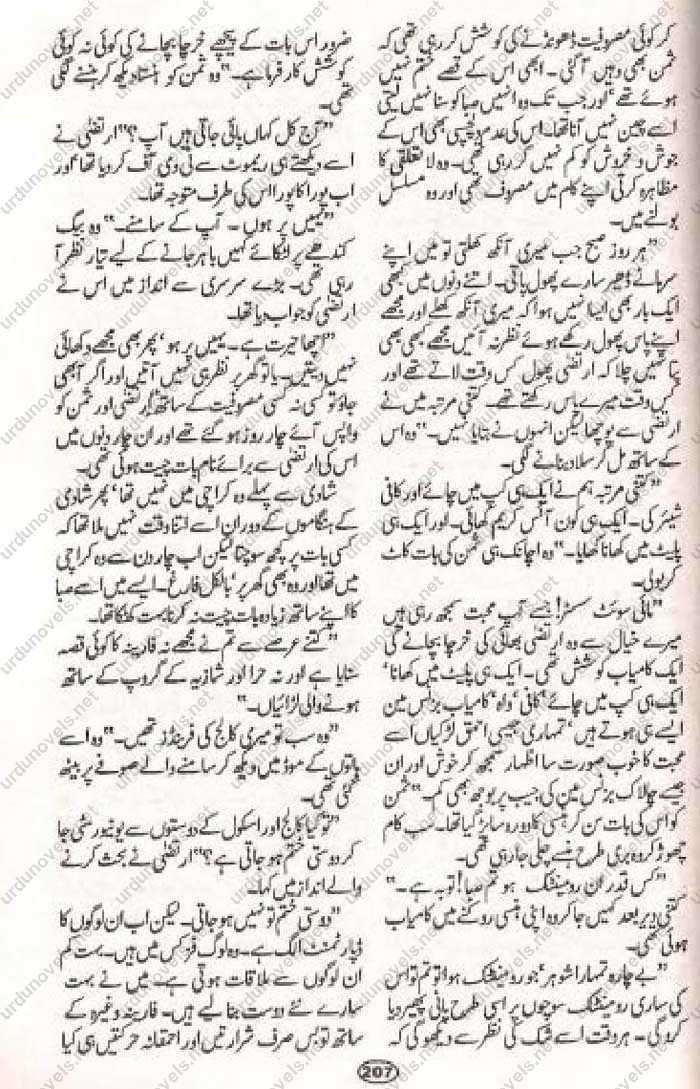 کر کوئی مصروفیت ڈھونڈنے کی کوشش کر رہی تھی کہ
ثمن بھی وہیں آ گئی۔ ابھی اس کے قصے ختم نہیں
ہوئے تھے اور جب تک وہ انہیں صبا کو سنا نہیں لیتی
اسے چین نہیں آنا تھا۔ اس کی عدم دلچسپی بھی اس کے
جوش و خروش کو کم نہیں کر رہی تھی۔ وہ لا تعلقی کا
مظاہرہ کرتی اپنے کام میں مصروف تھی اور وہ مسلسل
بولنے میں۔
”ہر روز صبح جب میری آنکھ کھلتی تو میں اپنے
سرہانے ڈھیر سارے پھول پاتی۔ اتنے دنوں میں کبھی
ایک بار بھی ایسا نہیں ہوا کہ میری آنکھ کھلے اور مجھے
اپنے پاس پھول رکھے ہوئے نظر نہ آئیں مجھے کبھی بھی
پتا نہیں چلا کہ ارتضیٰ پھول کس وقت لاتے تھے اور
کس وقت میرے پاس رکھتے تھے۔ کتنی مرتبہ میں نے
ارتضیٰ سے پوچھا لیکن انہوں نے بتایا نہیں۔“ وہ اس
کے ساتھ مل کر سلاد بنانے لگی۔
”کتنی مرتبہ ہم نے ایک ہی کپ میں چائے اور کافی
شیئر کی۔ ایک ہی کون آئس کریم کھائی۔ اور ایک ہی
پلیٹ میں کھانا کھایا۔“ وہ اچانک ہی ثمن کی بات کاٹ
کر بولی۔
”مائی سوئٹ سسٹر! جسے آپ محبت سمجھ رہی ہیں
میرے خیال سے وہ ارتضیٰ بھائی کی خرچا بچانے کی
ایک کامیاب کوشش تھی۔ ایک ہی پلیٹ میں کھانا‘
ایک ہی کپ میں چائے‘ کافی‘ واہ‘ کامیاب بزنس مین
ایسے ہی ہوتے ہیں‘ تمہاری جیسی احمق لڑکیاں اسے
محبت کا خوب صورت سا اظہار سمجھ کر خوش اور ان
جیسے چالاک بزنس مین کی جیب پر بوجھ بھی کم۔“ ثمن
کو اس کی بات سن کر ہنسی کا دورہ سا پڑ گیا تھا۔ سب کام
چھوڑ کر وہ بری طرح ہنسے چلی جا رہی تھی۔
”کس قدر ان رومینٹک ہو تم صبا! توبہ ہے۔“
کتنی دیر بعد کہیں جا کر وہ اپنی ہنسی روکنے میں کامیاب
ہوئی تھی۔
”بے چارہ تمہارا شوہر‘ جو رومینٹک ہوا تو تم تو اس
کی ساری رومینٹک سوچوں پر اسی طرح پانی پھیر دیا
کرو گی۔ ہر وقت اسے شک کی نظر سے دیکھو گی کہ
ضرور اس بات کے پیچھے خرچا بچانے کی کوئی نہ کوئی
کوشش کار فرما ہے۔“ وہ ثمن کو ہنستا دیکھ کر ہنسنے لگی
تھی۔
”آج کل کہاں پائی جاتی ہیں آپ؟“ ارتضیٰ نے
اسے دیکھتے ہی ریموٹ سے ٹی وی آف کر دیا تھا‘ اور
اب پورا کا پورا اس کی طرف متوجہ تھا۔
”یہیں پر ہوں۔ آپ کے سامنے۔“ وہ بیگ
کندھے پر لٹکائے کہیں باہر جانے کے لیے تیار نظر آ
رہی تھی۔ بڑے سرسری سے انداز میں اس نے
ارتضیٰ کو جواب دیا تھا۔
”اچھا حیرت ہے۔ یہیں پر ہو‘ پھر بھی مجھے دکھائی
نہیں دیتیں۔ یا تو گھر پر نظر ہی نہیں آتیں اور اگر آ بھی
جاؤ تو کسی نہ کسی مصروفیت کے ساتھ“ ارتضیٰ اور ثمن کو
واپس آئے چار روز ہو گئے تھے اور ان چار دنوں میں
اس کی ارتضیٰ سے برائے نام بات چیت ہوئی تھی۔
شادی سے پہلے وہ کراچی میں نہیں تھا‘ پھر شادی
کے ہنگاموں کے دوران اسے اتنا وقت نہیں ملا تھا کہ
کسی بات پر کچھ سوچتا لیکن اب چار دن سے وہ کراچی
میں تھا اور وہ بھی گھر پر‘ بالکل فارغ۔ ایسے میں اسے صبا
کا اپنے ساتھ زیادہ بات چیت نہ کرنا بہت کھٹکا تھا۔
”کتنے عرصے سے تم نے مجھے نہ فارینہ کا کوئی قصہ
سنایا ہے اور نہ حرا اور شازیہ کے گروپ کے ساتھ
ہونے والی لڑائیاں۔“
”وہ سب تو میری کالج کی فرینڈز تھیں۔“ وہ اسے
باتوں کے موڈ میں دیکھ کر سامنے والے صوفے پر بیٹھ
گئی تھی۔
”تو کیا کالج اور اسکول کے دوستوں سے یونیورسٹی جا
کر دوستی ختم ہو جاتی ہے؟“ ارتضیٰ نے بحث کرنے
والے انداز میں کہا۔
”دوستی ختم تو نہیں ہو جاتی۔ لیکن اب ان لوگوں کا
ڈپارٹمنٹ الگ ہے۔ وہ لوگ فزکس میں ہیں۔ بہت کم
ان لوگوں سے ملاقات ہوتی ہے۔ میں نے بہت
سارے نئے دوست بنا لیے ہیں۔ فارینہ وغیرہ کے
ساتھ تو بس صرف شرارتیں اور احمقانہ حرکتیں ہی کیا
207
urdunovels.net